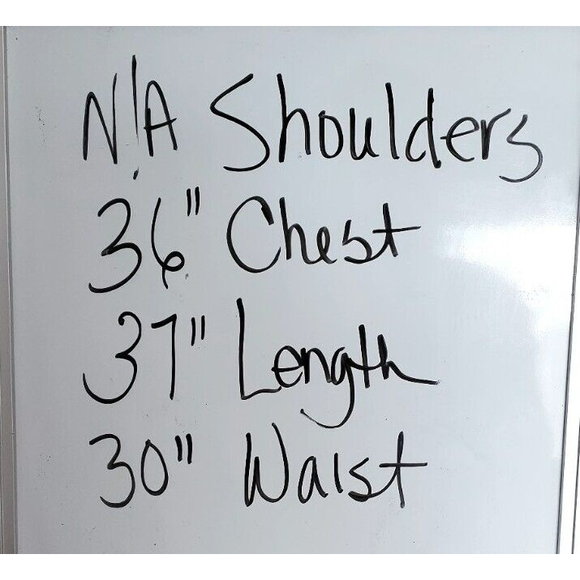 N/A Shoulders
36" Chest
37" Length
30" Waist